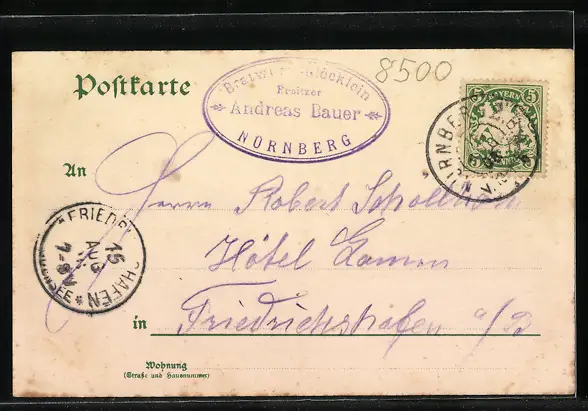 Postkarte
8500
Bratwurst-Glöcklein
Besitzer
Andreas Bauer
NÜRNBERG
BAYERN 5
NÜRNBERG
An
Herrn Robert
Hôtel
in Friedrichshafen a/B
FRIEDRICHSHAFEN
15
AUG
7-8
Wohnung
(Straße und Hausnummer)